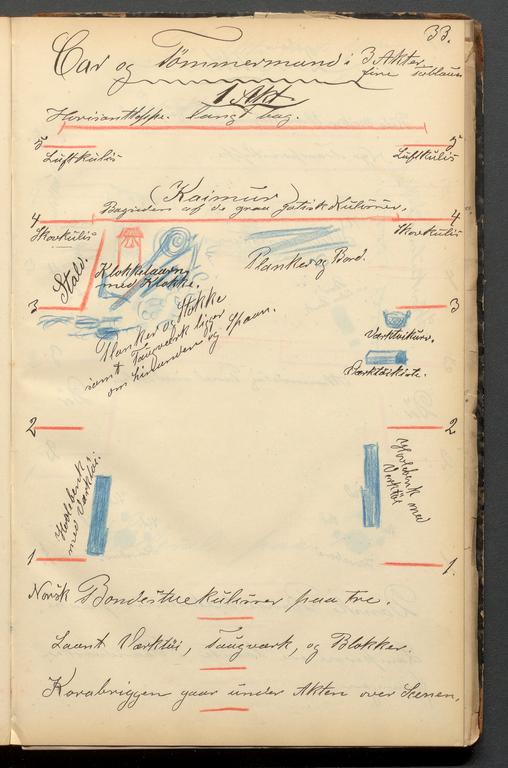 33.
Czar og Tømmermand i 3 Akter
fire Tableauer
1 Akt
Horisonttæppe. langt bag.
5 5
Luftkulis Luftkulis
(Kaimuur)
Bagsiden af de graa gotisk Kulisser.
4 4
Skovkulis Skovkulis
Stald.
Klokketaarn
med Klokke.
Planker og Bord.
Planker og Stokke
samt Taugværk ligger
om hinanden og Spaan.
3 3
Værktøikurv.
Værktøikiste.
2 2
Høvlebenk
med Værktøi.
Høvlebenk med
Værktøi
1 1.
Norsk Bondestuekulisser paa tre.
Laant Værktøi, Taugværk, og Blokker.
gaar under Akten over Scenen.